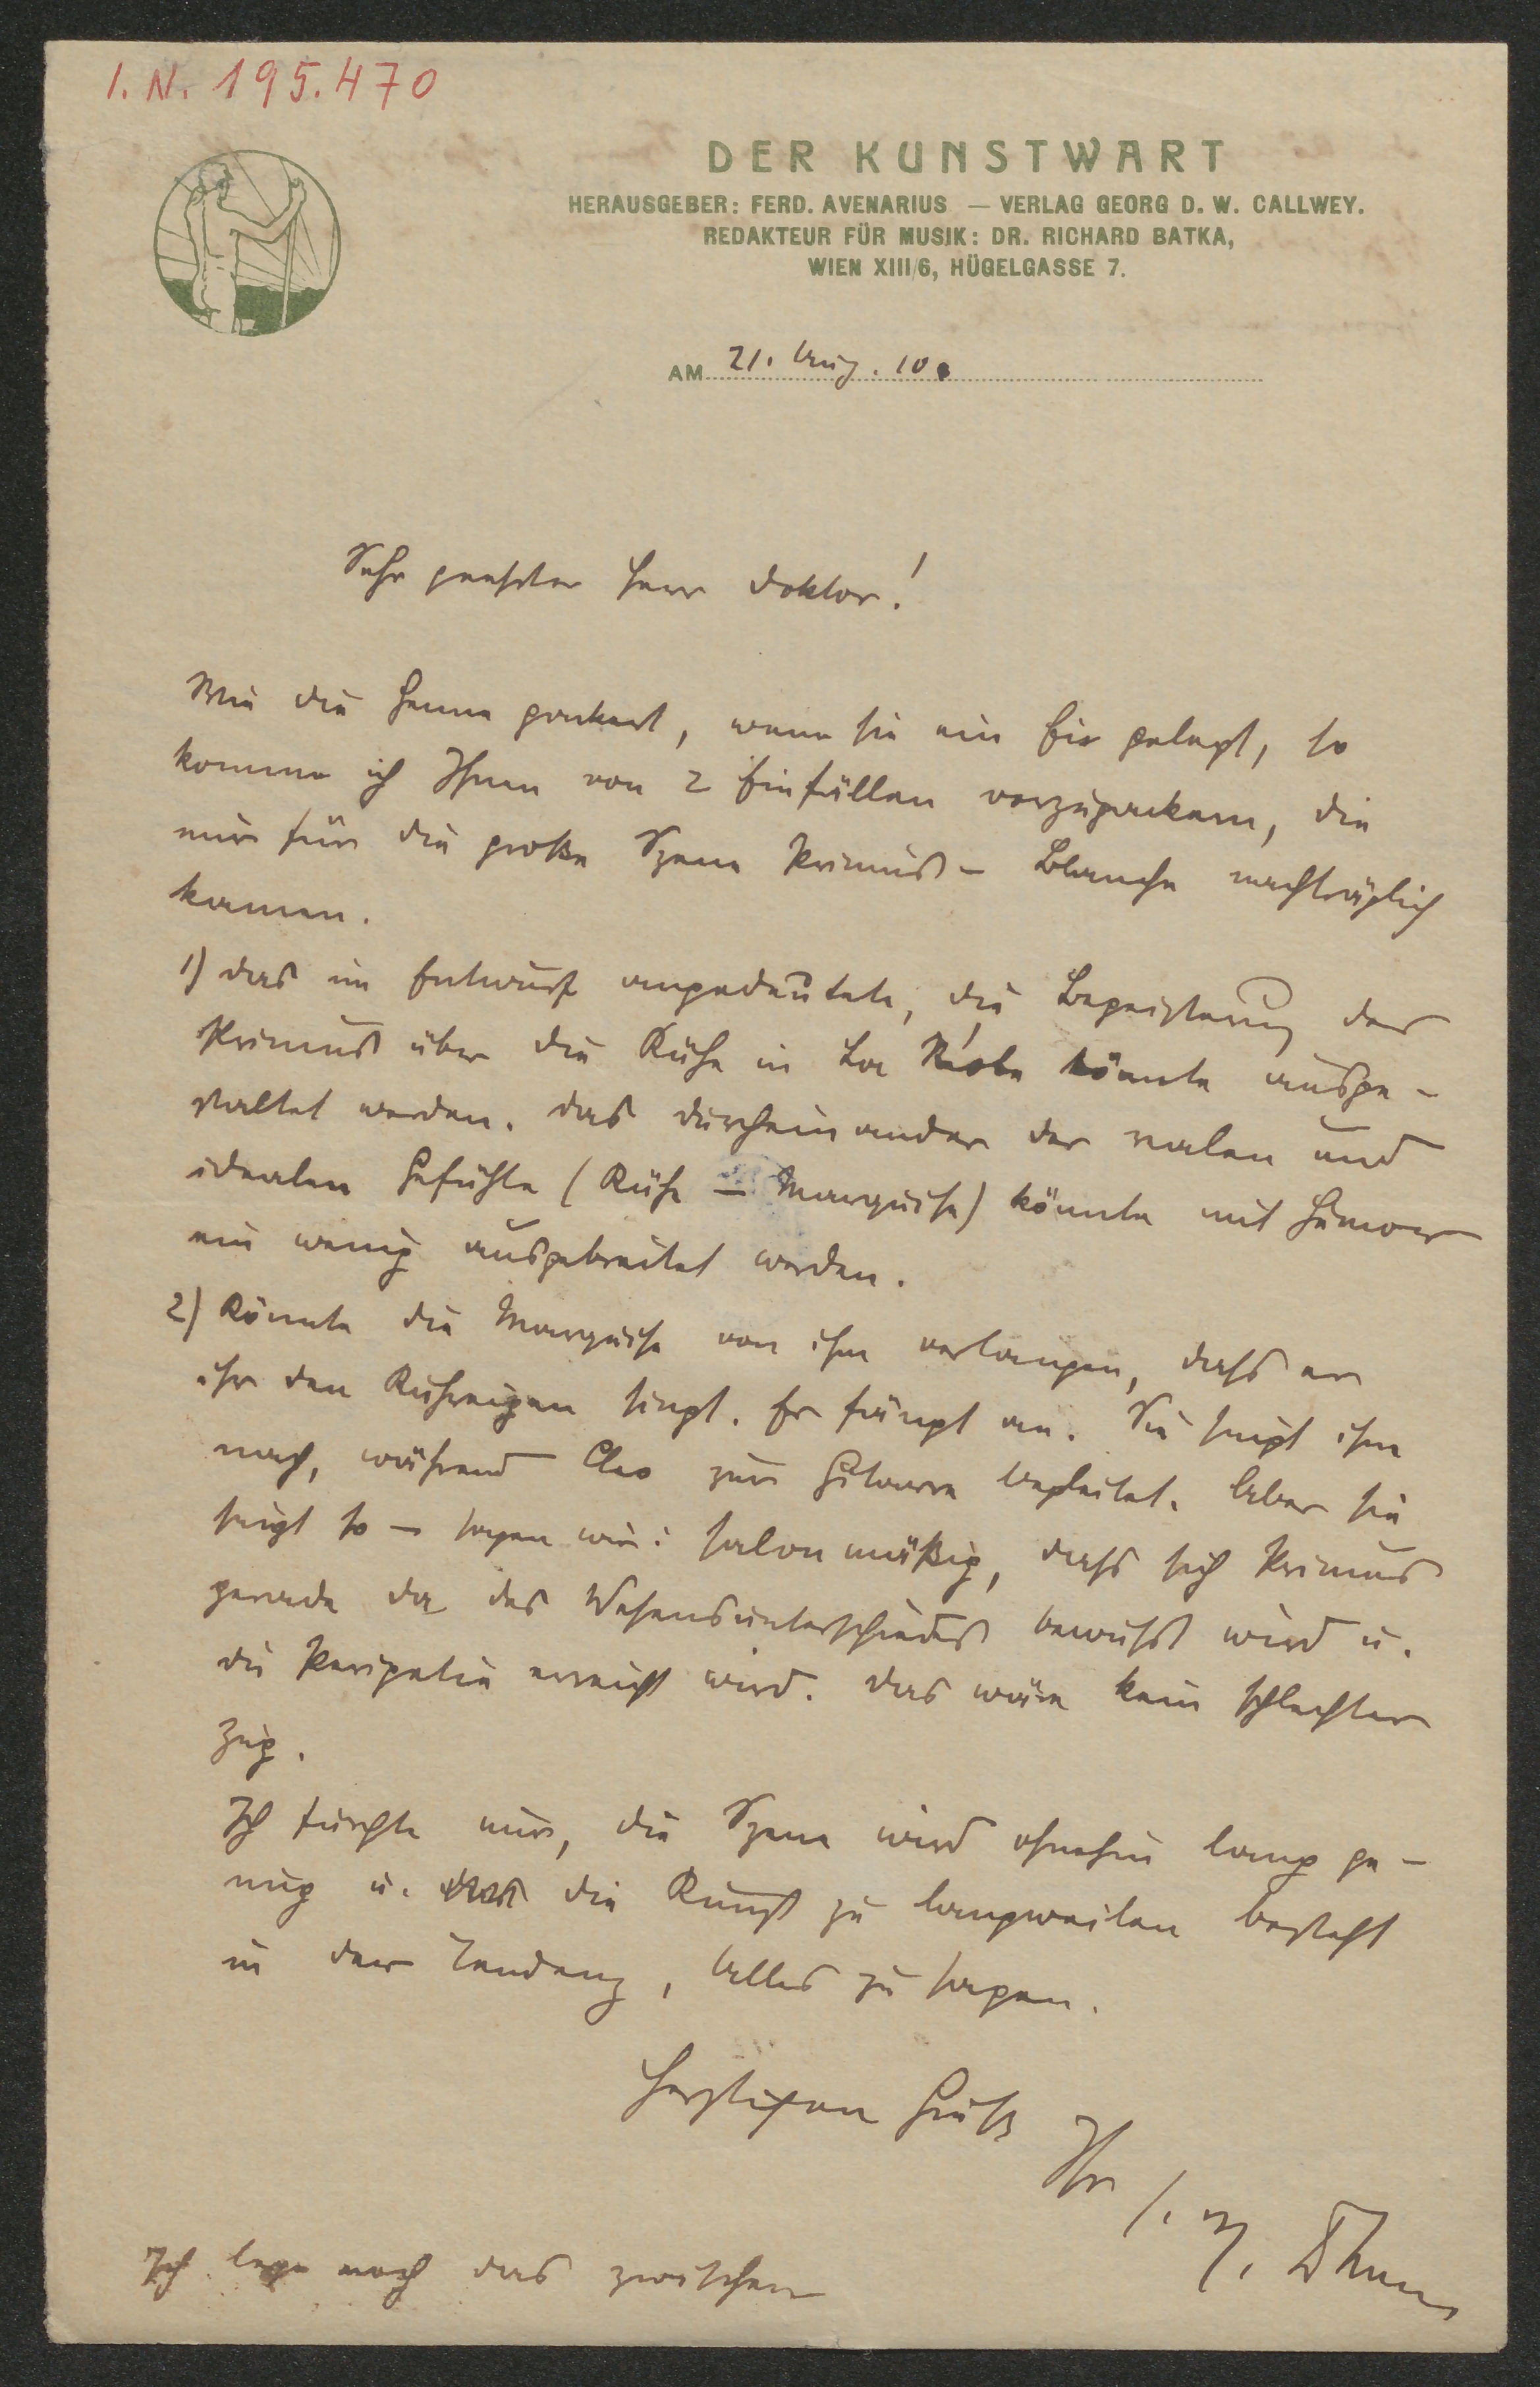 I. N. 195.470
DER KUNSTWART
HERAUSGEBER: FERD. AVENARIUS — VERLAG GEORG D. W. CALLWEY.
REDAKTEUR FÜR MUSIK: DR. RICHARD BATKA,
WIEN XIII/6, HÜGELGASSE 7.
AM 21. Aug. 10
Sehr geehrter Herr Doktor!
Wie die Henne gackert, wenn sie ein Ei gelegt, so
komme ich Ihnen von 2 Einfällen vorzugackern, die
mir für die große Szene Primus - Blanche nachträglich
kamen.
1) das im Entwurf angedeutete, die Begeisterung des
Primus über die Kühe in La könnte ausge-
staltet werden. Das Durcheinander der realen und
idealen Gefühle (Kühe — Marquise) könnte mit Humor
ein wenig ausgebreitet werden.
2) Könnte die Marquise von ihm verlangen, dass er
ihr den Kuhreigen singt. Er fängt an. Sie singt ihm
nach, während Cleo zur Gitarre begleitet. Aber sie
singt so — sagen wir: salonmäßig, dass sich Primus
gerade da des Wesensunterschiedes bewusst wird u.
die Peripetie erreicht wird. Das wäre kein schlechter
Zug.
Ich fürchte nur, die Szene wird ohnehin lang ge-
nug u. die Kunst zu langweilen besteht
in der Tendenz, Alles zu sagen.
Herzlichen Gruß
Ihr
Ich lege noch das zwischen